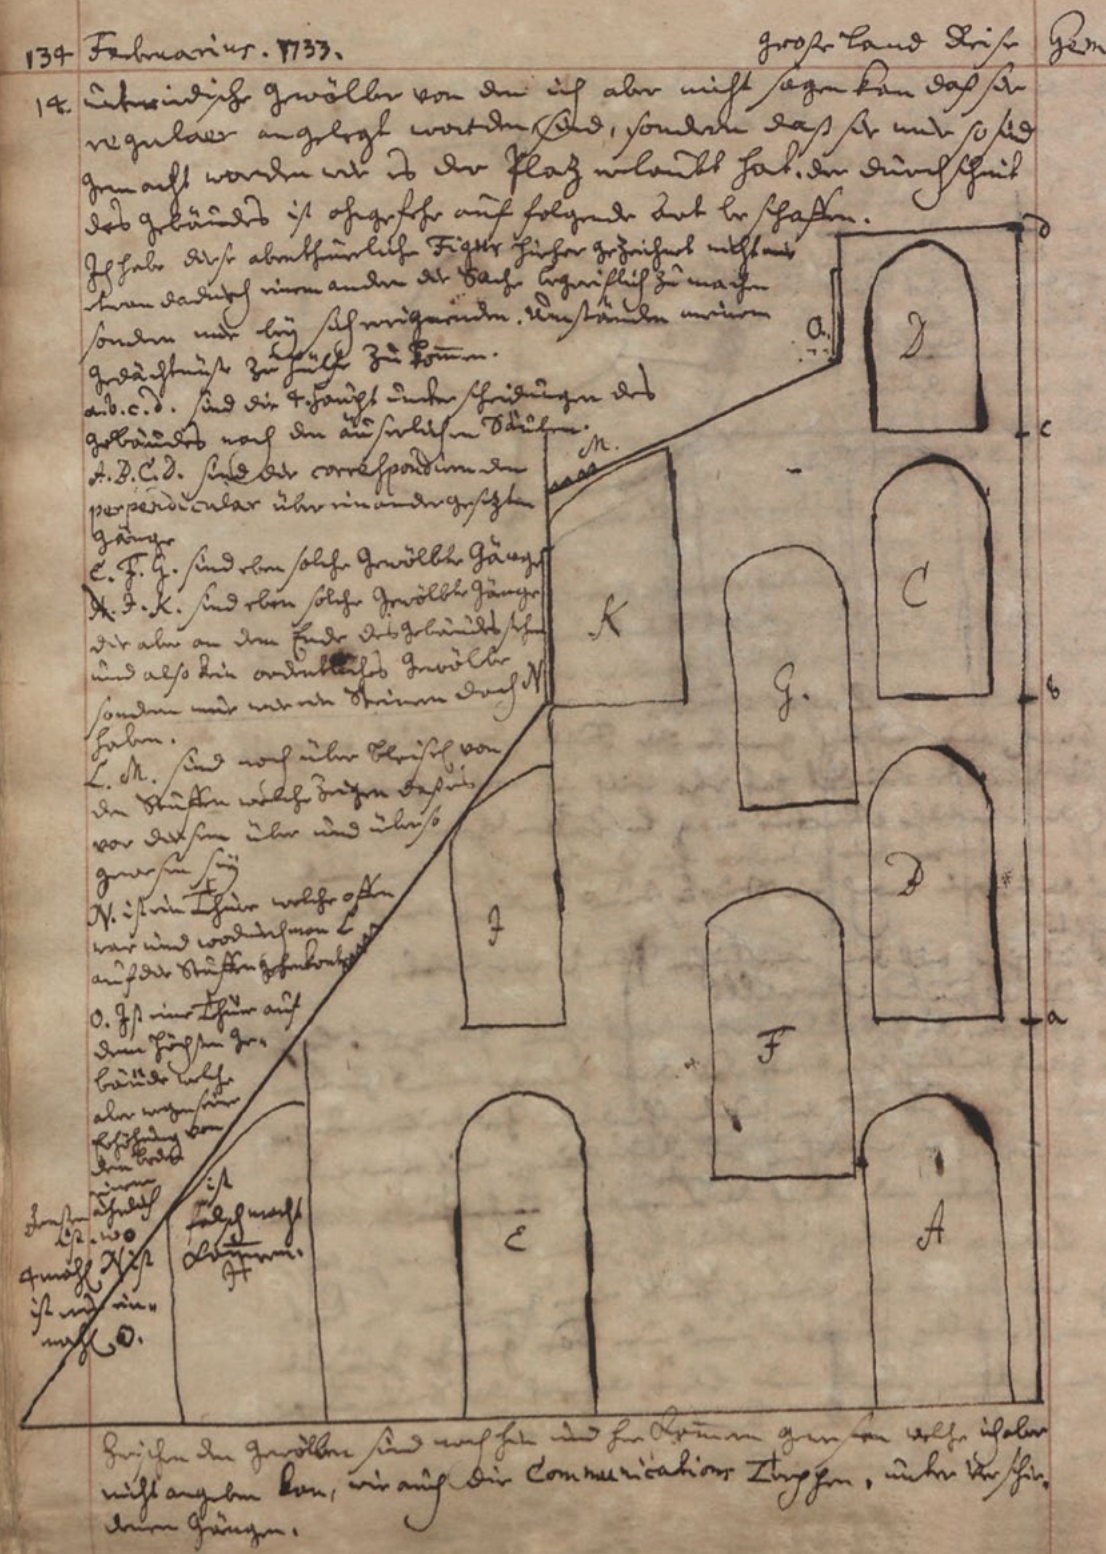 134 Februarius. 1733. große Land Reise Gem
14. unterirdische Gewölber von den ich aber nicht sagen kan daß sie
regulaer angelegt worden sind, sondern daß sie nur so sind
gemacht worden wie es der Platz erlaubt hat. der durchschnit
des Gebäudes ist ohngefehr auf folgende Art beschaffen.
Ich habe diese abentheurliche Figur hieher gezeichnet nicht
dadurch einem andern die Sache begreiflich zu machen
sondern nur bey sich ereignenden Umständen meinem
Gedächtnüße zu hülfe zu kom̄en.
a. b. c. d. sind die 4. haupt unterscheidungen des
Gebäudes nach den äuserlichen Säulen.
A. B. C. D. sind die correspondirenden
perpendicular über einander gesetzten
Gänge
E. F. G. sind eben solche Gewölbte Gänge
H. I. K. sind eben solche Gewölbte Gänge
die aber an dem Ende des Gebäudes sehn
und also kein ordentliches Gewölbe
sondern nur wie ein Steinern Dach
haben.
L. M. sind noch über bleibsel von
den Stuffen welche zeigen daß es
vor diesem über und über so
gewesen sey
N. ist ein Thüre welche offen
war und wodurch man
auf die Stuffen gehen konte
O. Ist eine Thür auf
dem höchsten Ge-
bäude welche
aber wegen seiner
Erhöhung von
dem boden
einem
Fenster ähnlich
ist. wo
4 mahl N ist
ist nur ein-
mahl O.
D
d
O.
M.
c
C
K
N
G.
b
B
I
L
a
F
ist
falsch macht
Kam̄ern.
H
E
A
Zwischen den Gewölben sind noch hin und her Kam̄ern gewesen welche ich aber
nicht angeben kan, wie auch die Communications Treppen, unter verschie-
denen Gängen.